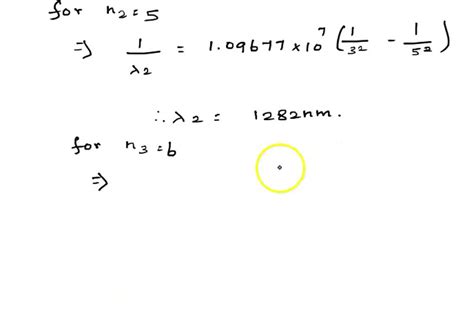 for n₂ = 5
⇒ 1/λ₂ = 1.09677 × 10⁷ (1/3² - 1/5²)
∴ λ₂ = 1282nm.
for n₃ = 6
⇒